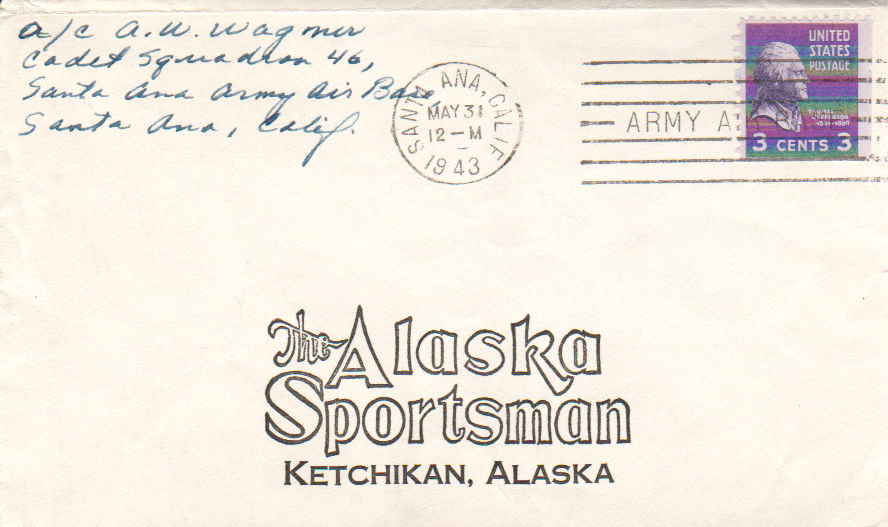 a/c A. W. Wagner
Cadet Squadron 46,
Santa Ana Army Air Base
Santa Ana, Calif.
SANTA ANA, CALIF.
MAY 31
12-M
1943
ARMY A
UNITED
STATES
POSTAGE
3 CENTS 3
The Alaska
Sportsman
KETCHIKAN, ALASKA